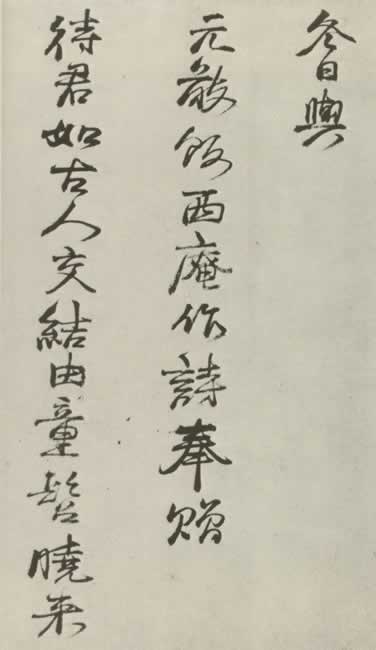 冬日與
元敬飯西庵作詩奉贈
待君如古人交結由童髫曉來